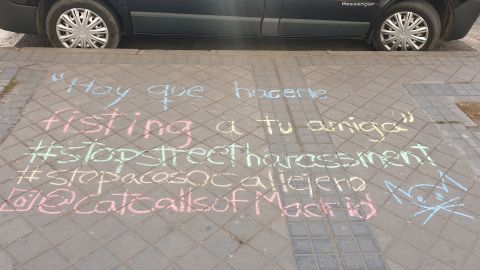 Passenger
"Hay que hacerle
fisting a tu amiga"
#stopstreetharassment
#stopacosocallejero
@catcallsofMadrid